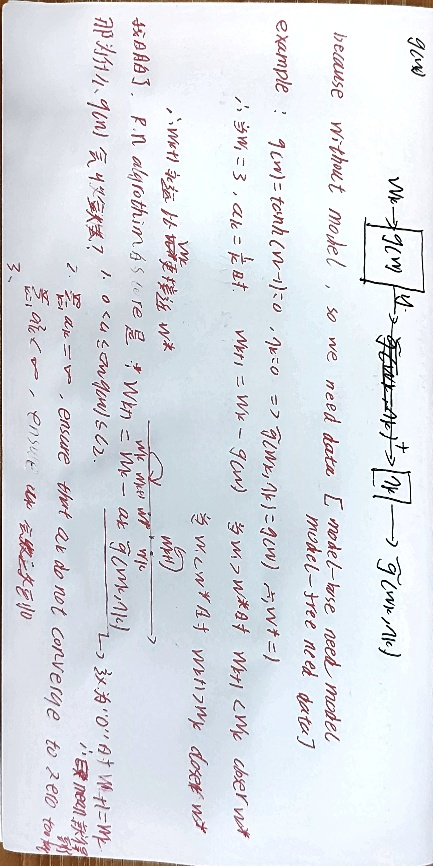 g(w)
wk → g(w) → + → ηk → g̃(wk, ηk)
because without model, so we need data [ model-base need model
model-free need data ]
example : g(w) = tanh(w-1) = 0, ηk = 0 => g̃(wk, ηk) = g(w) ∴ w* = 1
∴ 当 w1 = 3, ak = 1/k 时 wk+1 = wk - g(w) 当 wk > w* 时 wk+1 < wk closer w*
当 wk < w* 时 wk+1 > wk closer w*
∴ wk+1 比 wk 更接近 w*
wk wk+1
R.M algrothim is core 是 : wk+1 = wk - ak g̃(wk, ηk) → 为 "0" 时 wk+1 = wk
那为什么 g(w) 会收敛? 1. 0 < c1 ≤ ∇w g(w) ≤ c2.
2. ∑k=1 ak = ∞, ensure that ak do not converge to zero too
∑k=1 ak² < ∞, ensure ak 会
3.